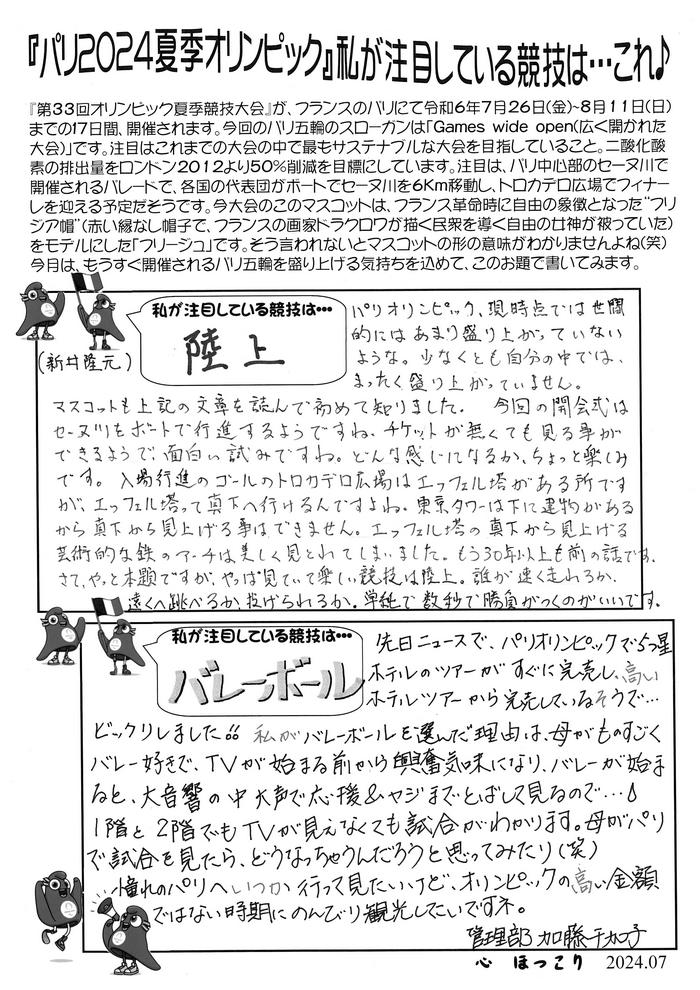 『パリ2024夏季オリンピック』私が注目している競技は…これ♪
『第33回オリンピック夏季競技大会』が、フランスのパリにて令和6年7月26日(金)~8月11日(日)
までの17日間、開催されます。今回のパリ五輪のスローガンは「Games wide open(広く開かれた
大会)」です。注目はこれまでの大会の中で最もサステナブルな大会を目指していること。二酸化炭
素の排出量をロンドン2012より50%削減を目標にしています。注目は、パリ中心部のセーヌ川で
開催されるパレードで、各国の代表団がボートでセーヌ川を6Km移動し、トロカデロ広場でフィナー
レを迎える予定だそうです。今大会のこのマスコットは、フランス革命時に自由の象徴となった“フリ
ジア帽”(赤い縁なし帽子で、フランスの画家ドラクロワが描く民衆を導く自由の女神が被っていた)
をモデルにした「フリージュ」です。そう言われないとマスコットの形の意味がわかりませんよね(笑)
今月は、もうすぐ開催されるパリ五輪を盛り上げる気持ちを込めて、このお題で書いてみます。
私が注目している競技は…
陸上
(新井隆元)
パリオリンピック、現時点では世間
的にはあまり盛り上がっていない
ような。少なくとも自分の中では、
まったく盛り上がっていません。
マスコットも上記の文章を読んで初めて知りました。 今回の開会式は
セーヌ川をボートで行進するようですね、チケットが無くても見る事が
できるようで、面白い試みですね。どんな感じになるか、ちょっと楽しみ
です。入場行進のゴールのトロカデロ広場はエッフェル塔がある所です
が、エッフェル塔って真下へ行けるんですよね。東京タワーは下に建物がある
から真下から見上げる事はできません。エッフェル塔の真下から見上げる
芸術的な鉄のアーチは美しく見とれてしまいました。もう30年以上も前の話です。
さて、やっと本題ですが、やっぱ見ていて楽しい競技は陸上。誰が速く走れるか、
遠くへ跳べるか、投げられるか。単純で数秒で勝負がつくのがいいです。
私が注目している競技は…
バレーボール
先日ニュースで、パリオリンピックで5つ星
ホテルのツアーがすぐに完売し、高い
ホテルツアーから完売しているそうで…
ビックリしました!! 私がバレーボールを選んだ理由は、母がものすごく
バレー好きで、TVが始まる前から興奮気味になり、バレーが始ま
ると、大音響の中大声で応援&ヤジまでとばして見るので…
1階と2階でもTVが見えなくても試合がわかります。母がパリ
で試合を見たら、どうなっちゃうんだろうと思ってみたり(笑)
憧れのパリへいつか行って見たいけど、オリンピックの高い金額
ではない時期にのんびり観光したいですネ。
管理部 加藤千加子
心 ほっこり 2024.07